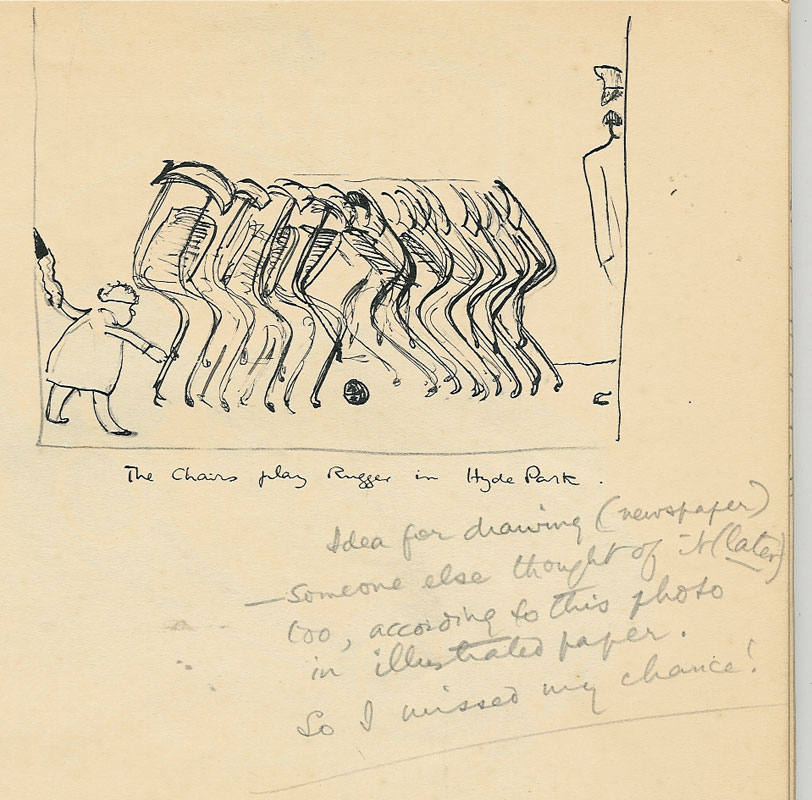 The Chairs play Rugger in Hyde Park.
Idea for drawing (newspaper)
—Someone else thought of it (later)
too, according to this photo
in illustrated paper.
So I missed my chance!